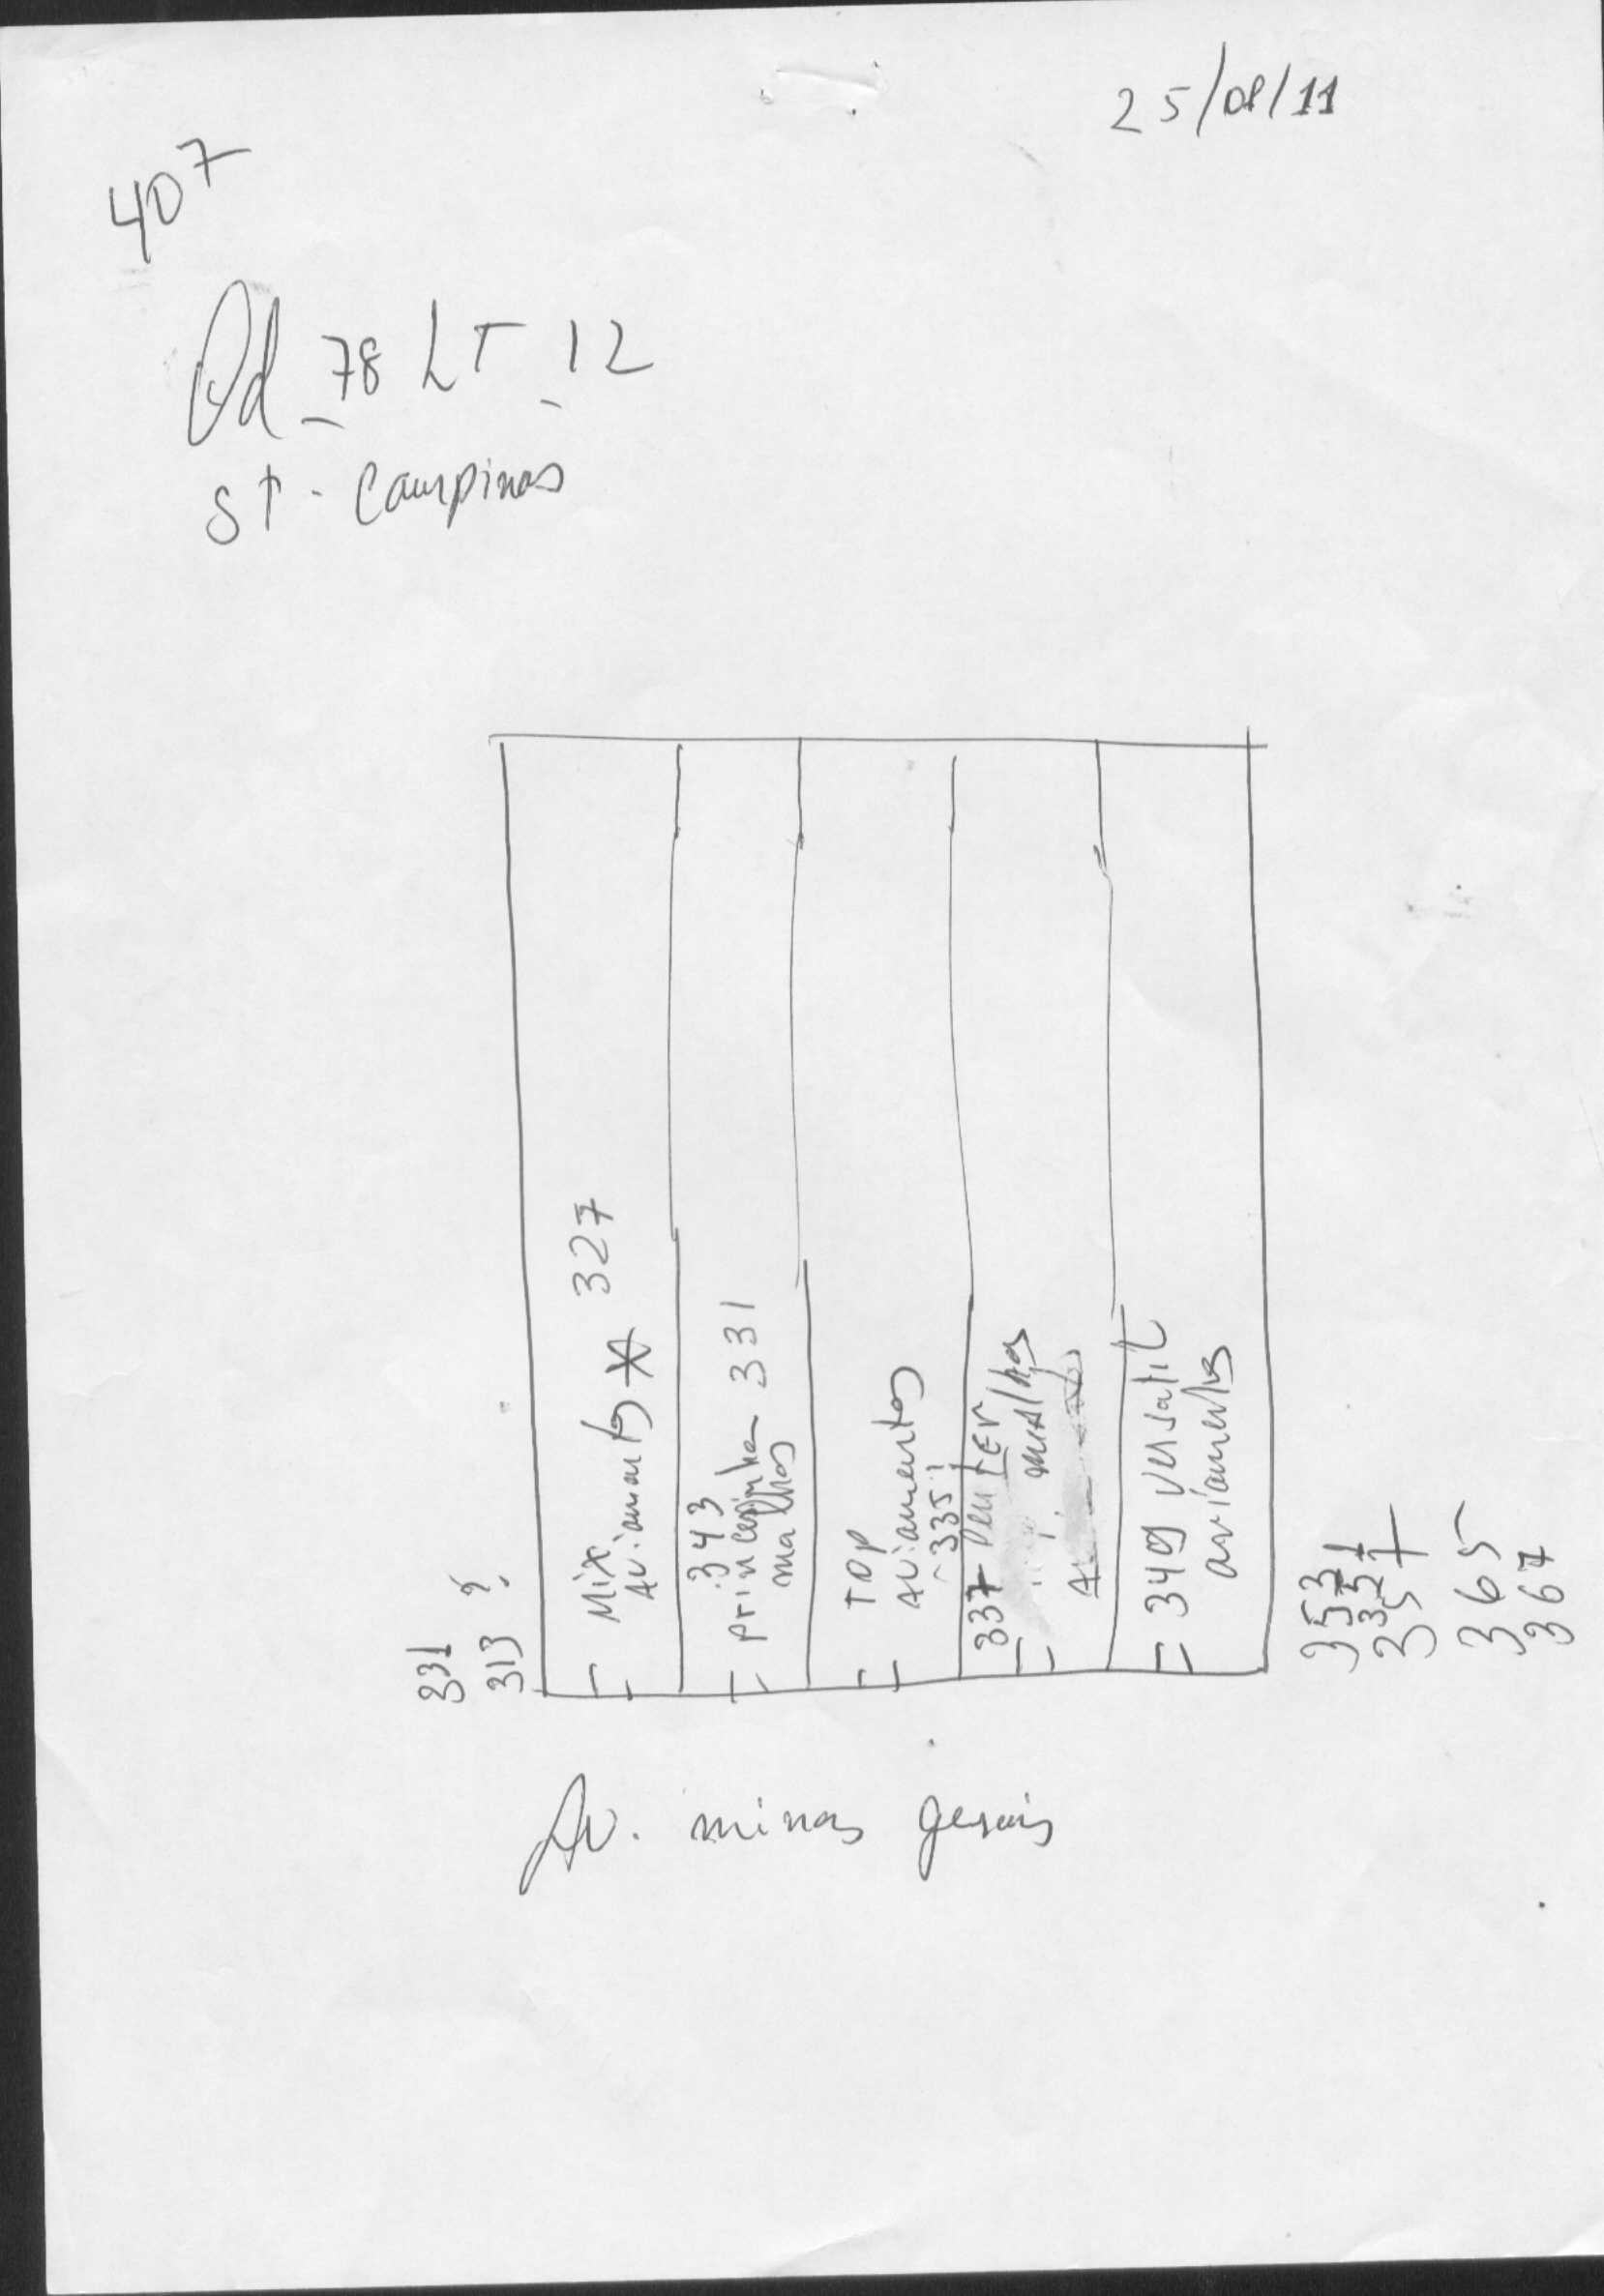 25/08/11
407
Qd_78 LT_12
ST - Campinas
331
313 ?
Mix 327
Aviamentos
343
princesinha 331
malhas
TOP
Aviamentos
335
337
malhas
349 versatil
aviamentos
353
351
357
365
367
Av. minas gerais